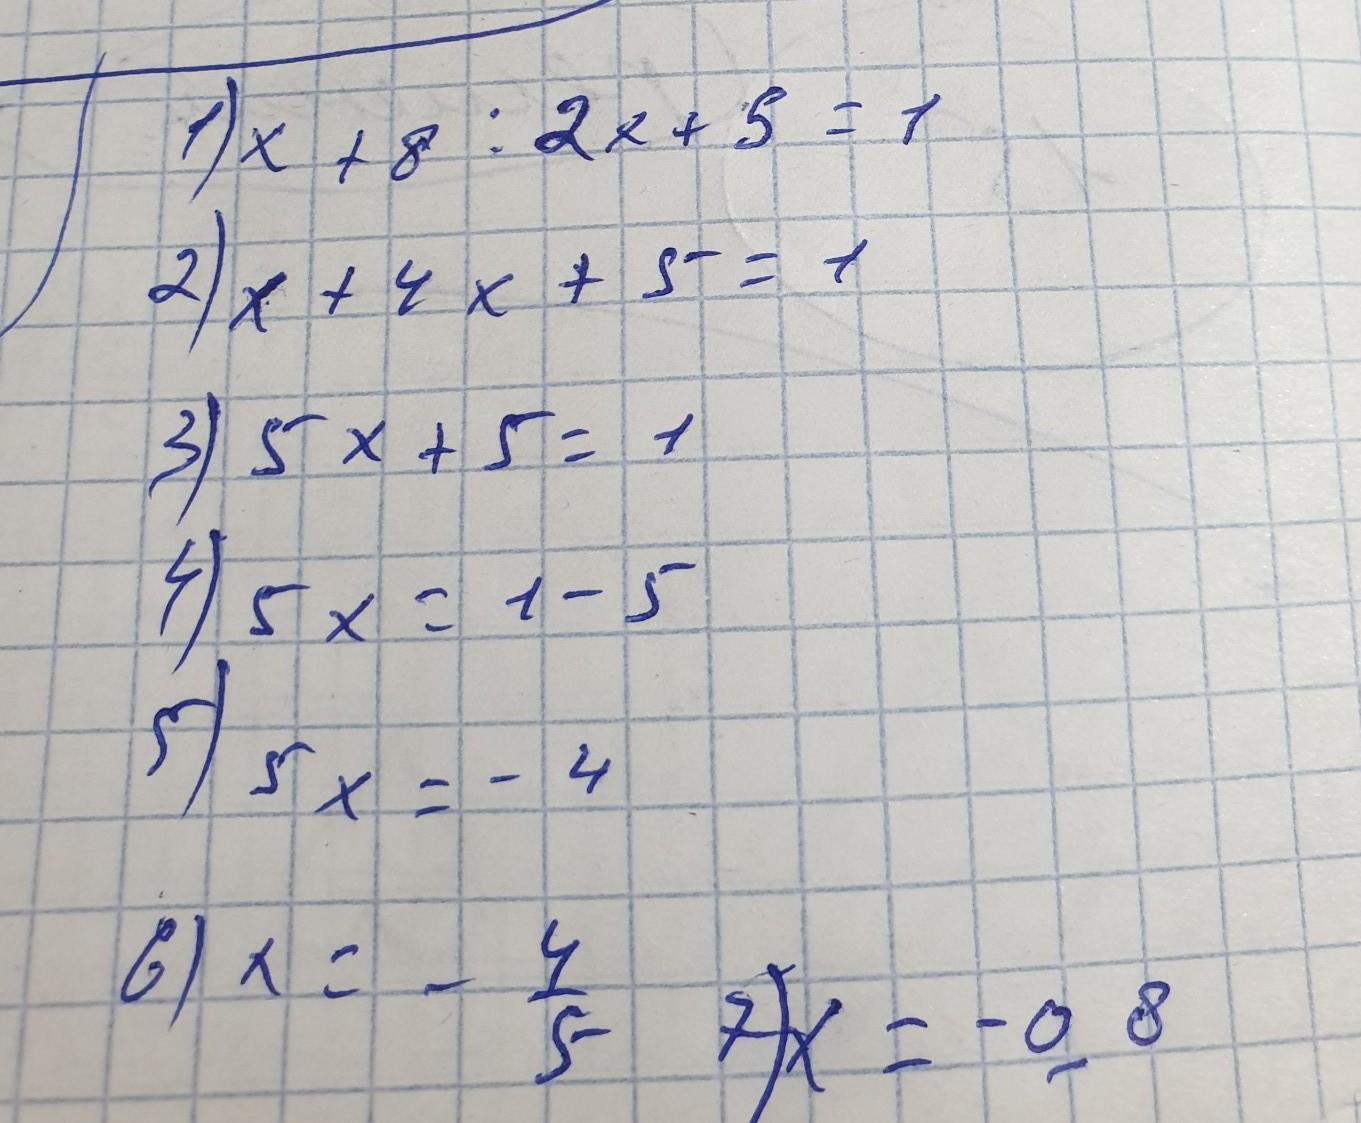 1) x + 8 : 2x + 5 = 1
2) x + 4x + 5 = 1
3) 5x + 5 = 1
4) 5x = 1 - 5
5) 5x = - 4
6) x = - 4/5
7) x = -0,8